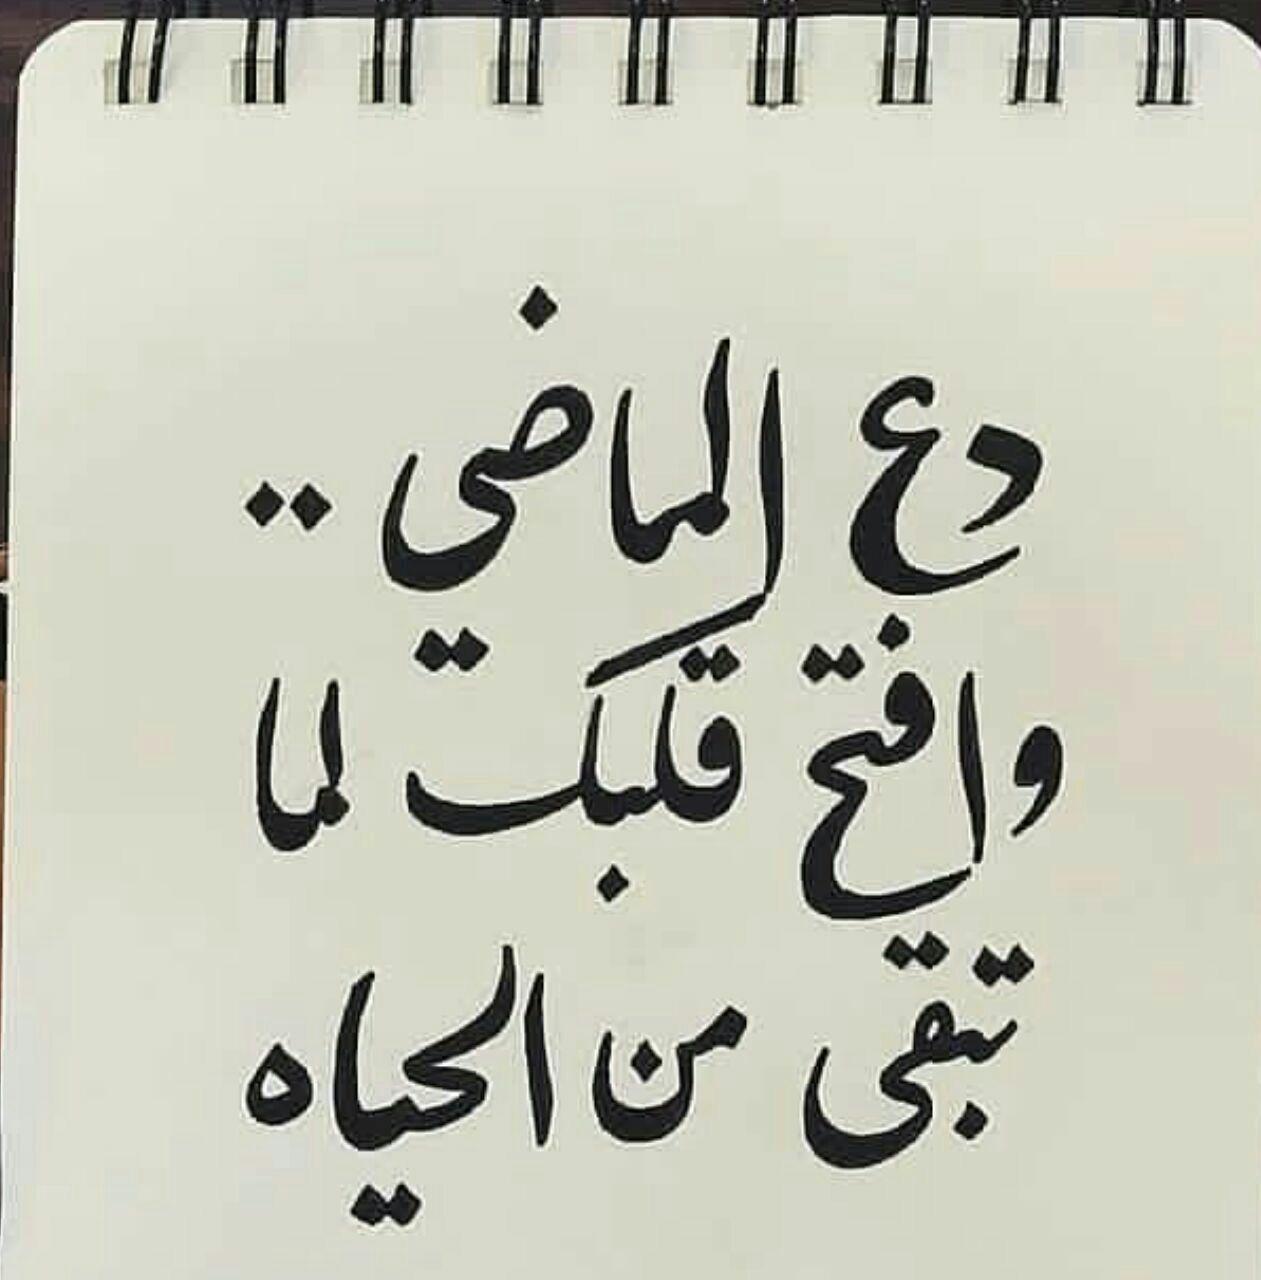 دع الماضي ..
وافتح قلبك لما
تبقى من الحياه